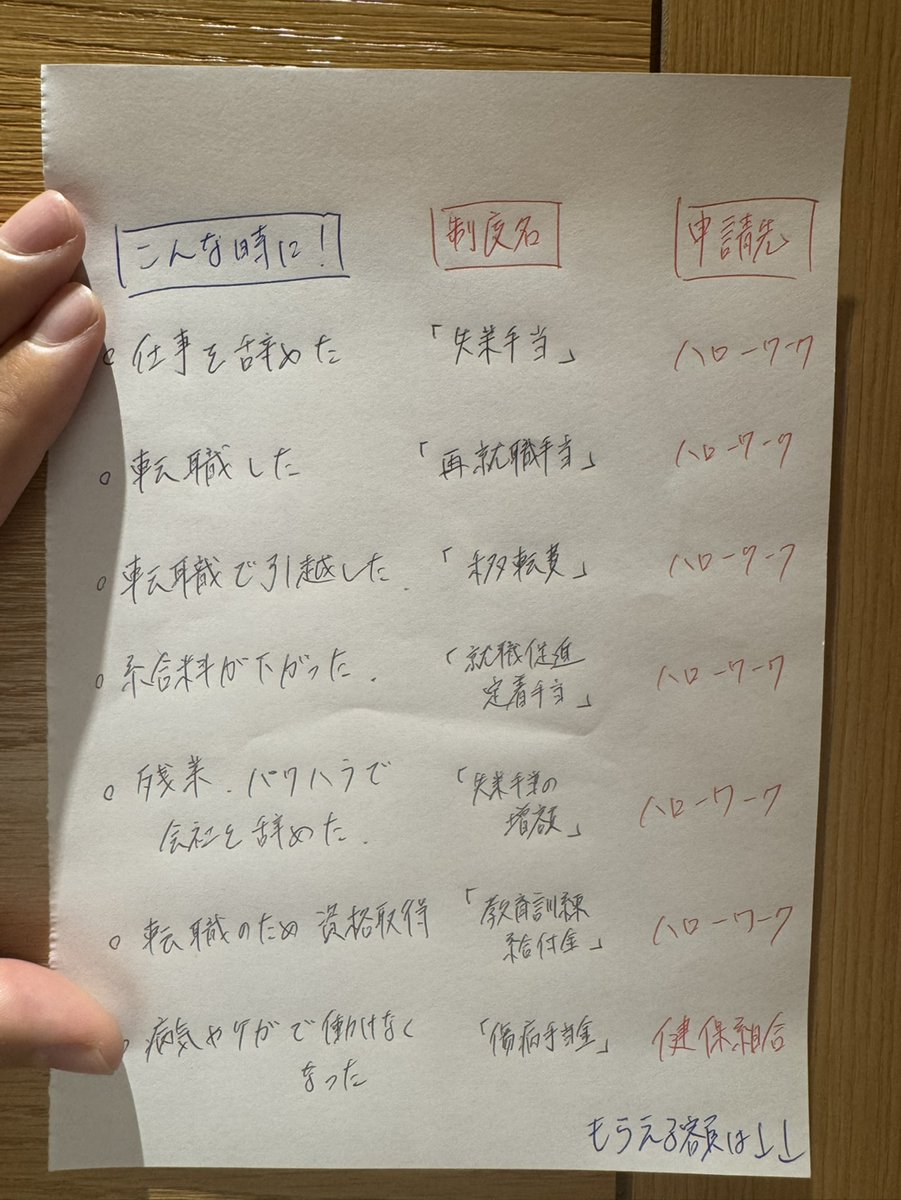 こんな時に! 制度名 申請先
○ 仕事を辞めた 「失業手当」 ハローワーク
○ 転職した 「再就職手当」 ハローワーク
○ 転職で引越した. 「移転費」 ハローワーク
○ 給料が下がった. 「就職促進 ハローワーク
定着手当」
○ 残業.パワハラで 「失業手当の ハローワーク
会社を辞めた. 増額」
○ 転職のため資格取得 「教育訓練 ハローワーク
給付金」
○ 病気やケガで働けなく 「傷病手当金」 健保組合
なった
もらえる額は↓↓